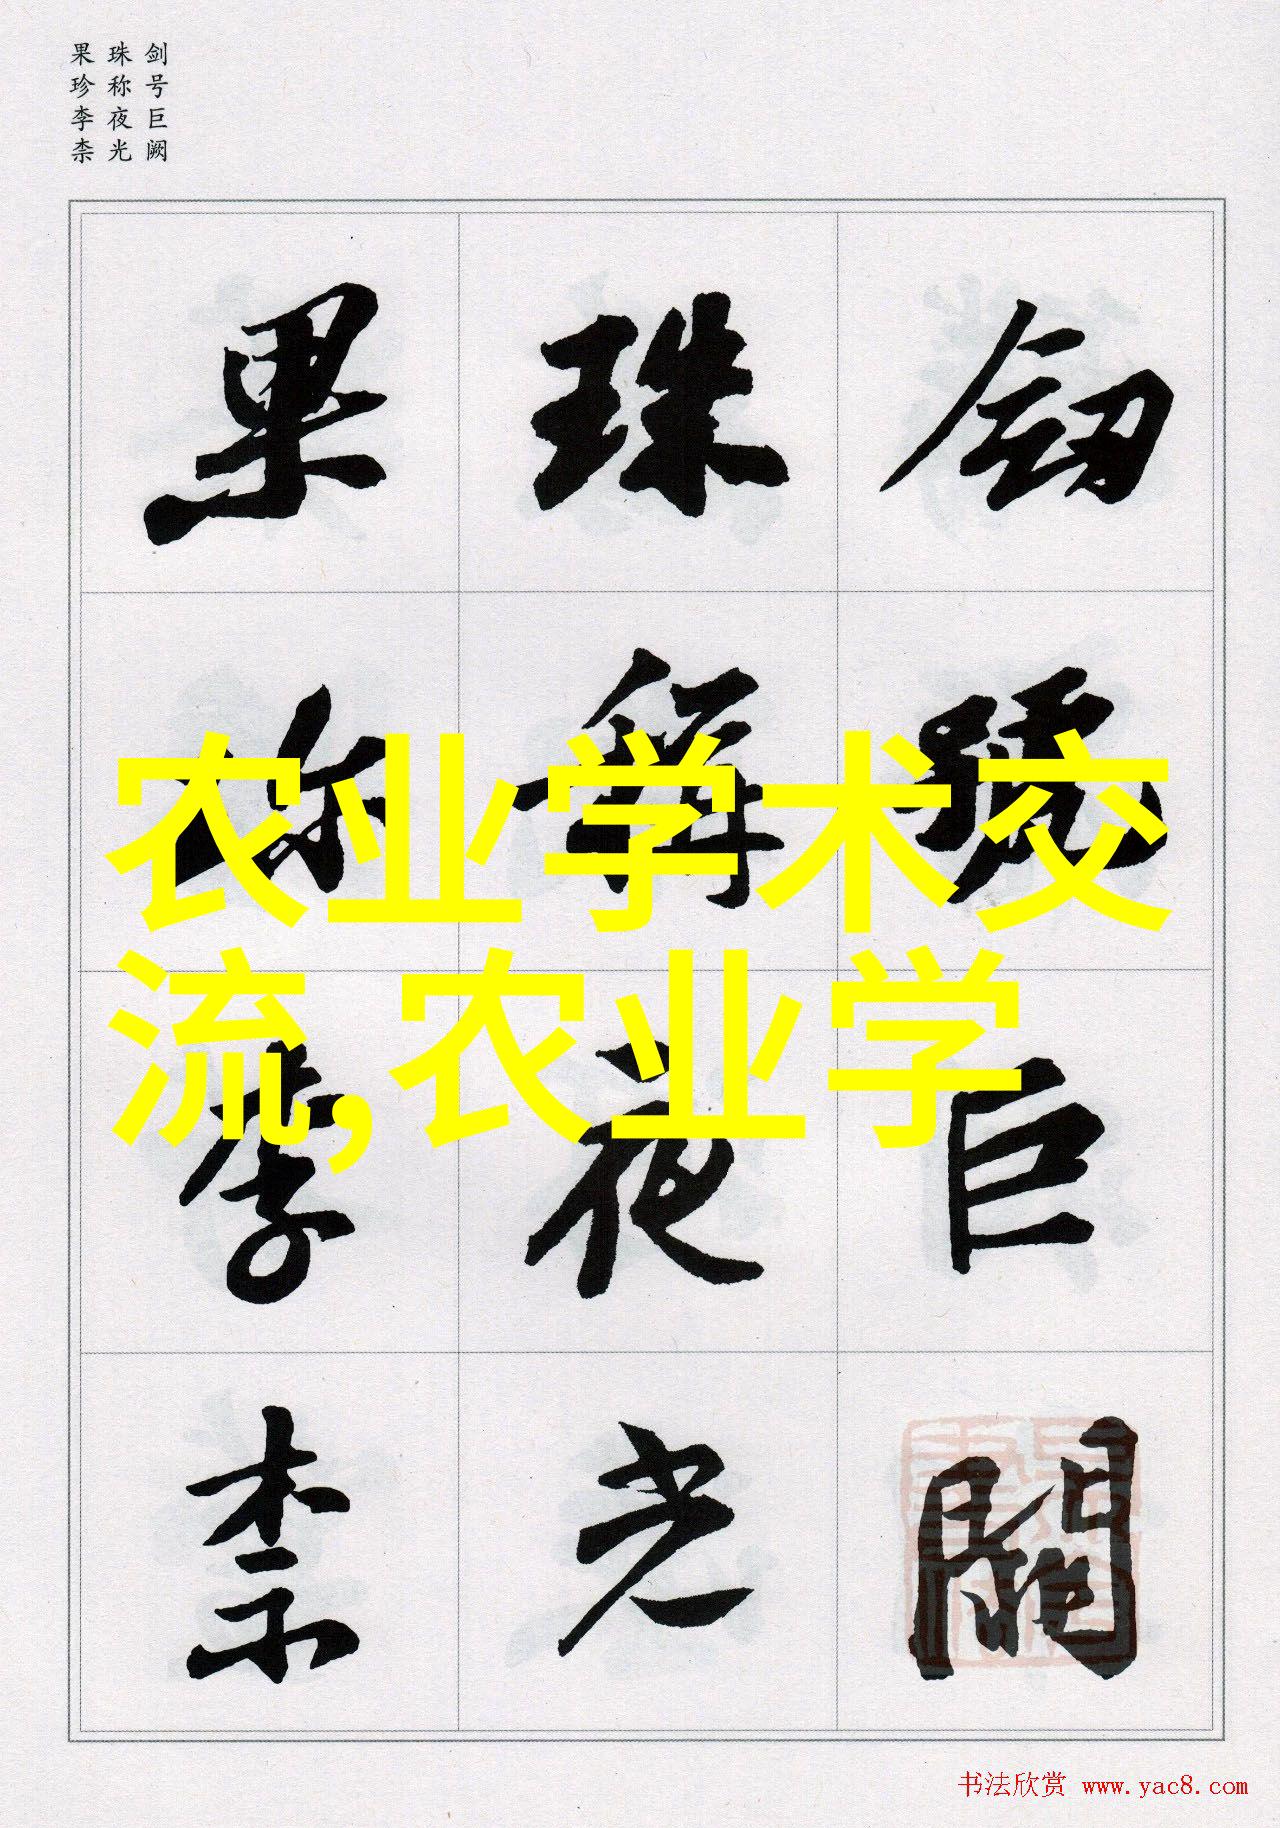 剑号巨阙
珠称夜光
果珍李柰
釼號巨闕
珠稱夜光
果珎李柰
农业学术交
流,农业学
书法欣赏 www.yac8.com